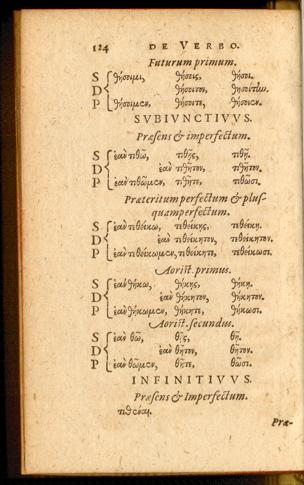 124 DE VERBO.
Futurum primum.
S θήσοιμι, θήσοις, θήσοι.
D θήσοιτον, θησοίτην.
P θήσοιμεν, θήσοιτε, θήσοιεν.
SVBIVNCTIVVS.
Præsens & imperfectum.
S ἐὰν τιθῶ, τιθῇς, τιθῇ.
D ἐὰν τιθῆτον, τιθῆτον.
P ἐὰν τιθῶμεν, τιθῆτε, τιθῶσι.
Præteritum perfectum & plus-
quamperfectum.
S ἐὰν τεθείκω, τεθείκῃς, τεθείκῃ.
D ἐὰν τεθείκητον, τεθείκητον.
P ἐὰν τεθείκωμεν, τεθείκητε, τεθείκωσι.
Aorist. primus.
S ἐὰν θήκω, θήκῃς, θήκῃ.
D ἐὰν θήκητον, θήκητον.
P ἐὰν θήκωμεν, θήκητε, θήκωσι.
Aorist. secundus.
S ἐὰν θῶ, θῇς, θῇ.
D ἐὰν θῆτον, θῆτον.
P ἐὰν θῶμεν, θῆτε, θῶσι.
INFINITIVVS.
Præsens & Imperfectum.
τιθέναι.
Præ-